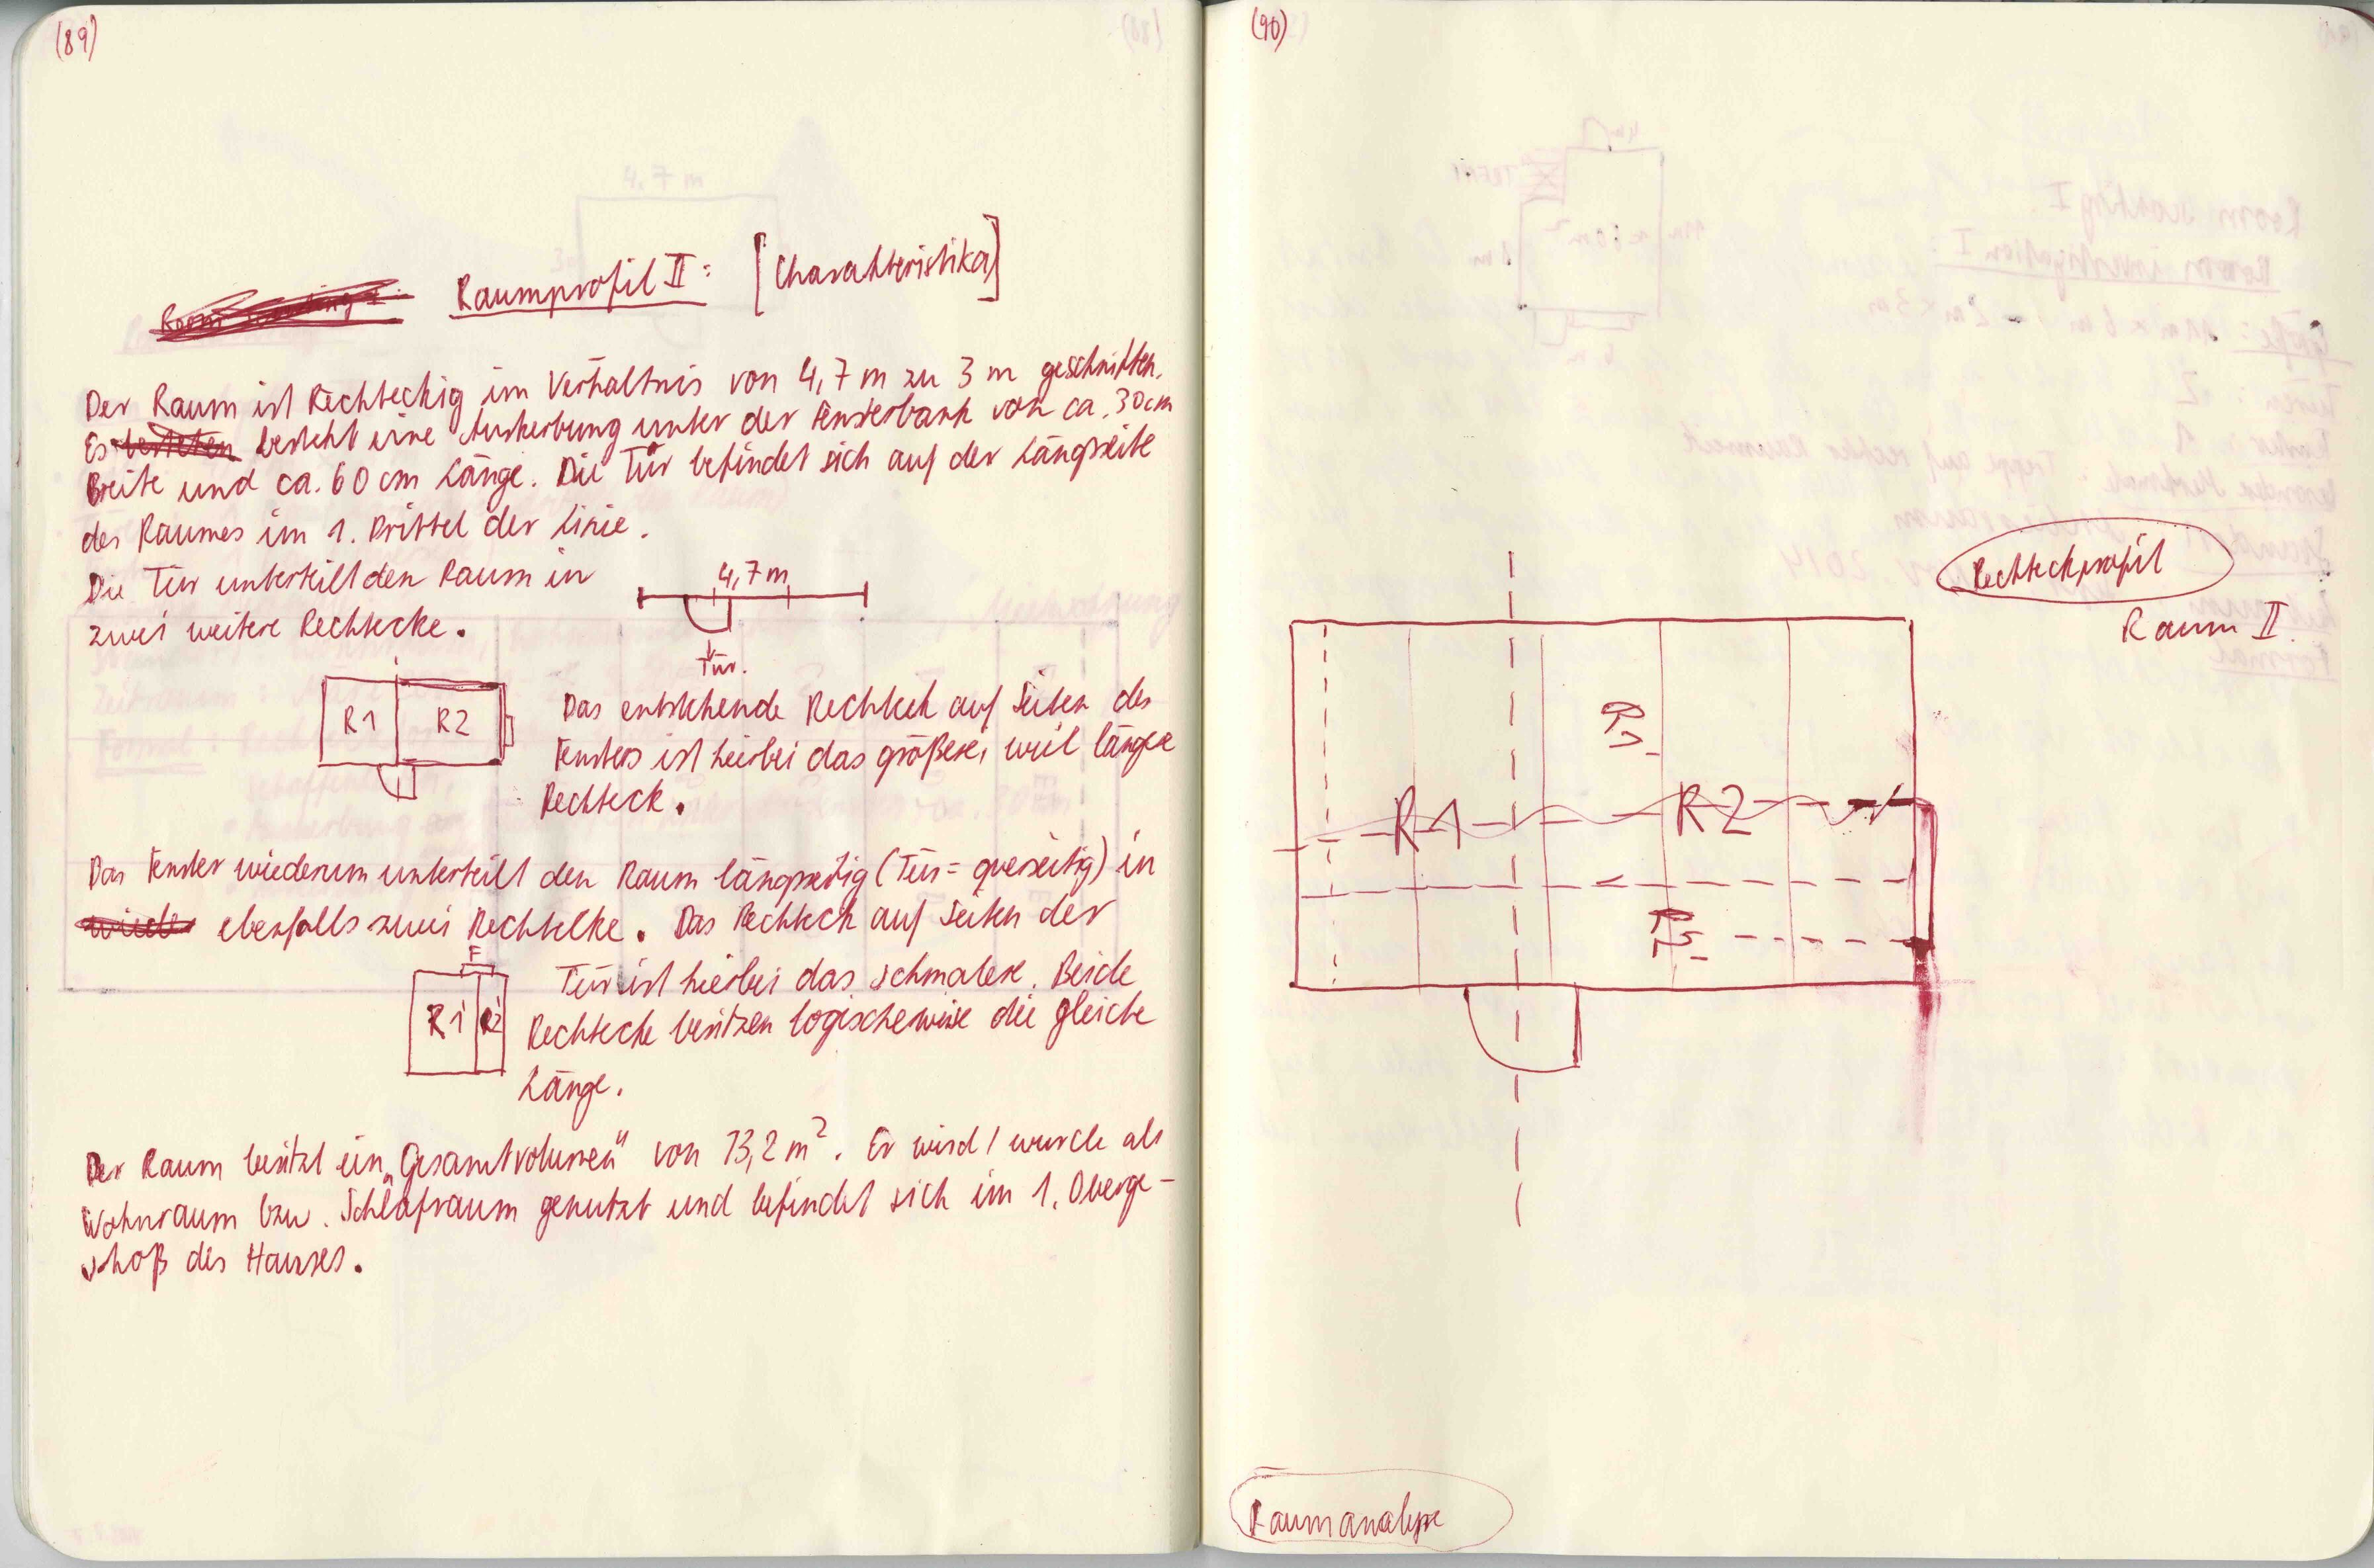 (89)
Raumprofil II: [Charakteristika]
Der Raum ist Rechteckig im Verhältnis von 4,7 m zu 3 m geschnitten.
Es besteht eine Auskerbung unter der Fensterbank von ca. 30 cm
Breite und ca. 60 cm Länge. Die Tür befindet sich auf der Längsseite
des Raumes im 1. Drittel der Linie.
Die Tür unterteilt den Raum in
zwei weitere Rechtecke.
4,7 m
Tür.
R1 R2
Das entstehende Rechteck auf Seiten des
Fensters ist hierbei das größere, weil längere
Rechteck.
Das Fenster wiederum unterteilt den Raum längsseitig (Tür = querseitig) in
ebenfalls zwei Rechtecke. Das Rechteck auf Seiten der
F
Tür ist hierbei das schmalere. Beide
R1 R2
Rechtecke besitzen logischerweise die gleiche
Länge.
Der Raum besitzt ein „Gesamtvolumen" von 13,2 m². Er wird / wurde als
Wohnraum bzw. Schlafraum genutzt und befindet sich im 1. Oberge-
schoß des Hauses.
(90)
Rechteckprofil
Raum II.
R1 R2
Raumanalyse